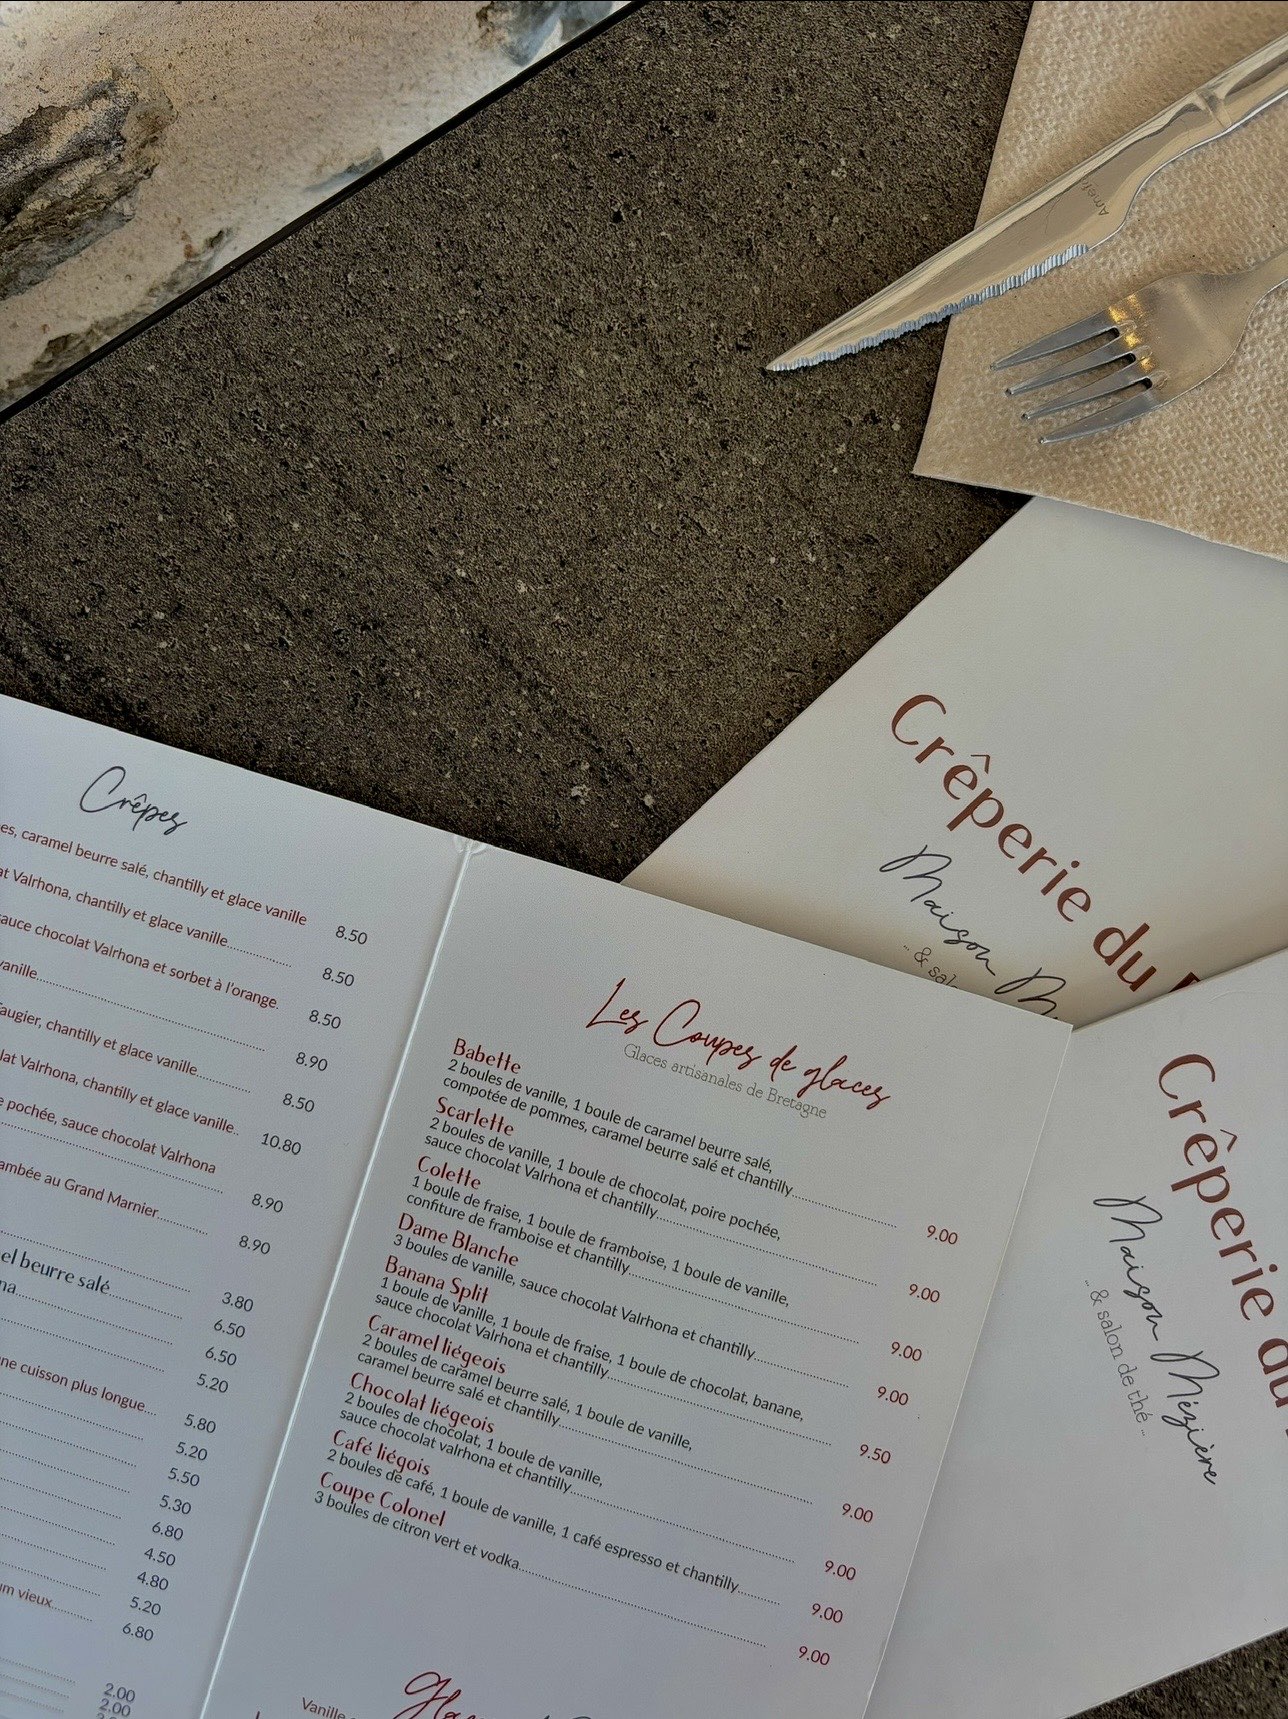 Amefa
Crêperie du
Maison M
... & sal
Crêperie du
Maison Mézière
... & salon de thé ...
Crêpes
es, caramel beurre salé, chantilly et glace vanille 8.50
at Valrhona, chantilly et glace vanille 8.50
sauce chocolat Valrhona et sorbet à l'orange. 8.50
vanille 8.90
augier, chantilly et glace vanille 8.50
lat Valrhona, chantilly et glace vanille.. 10.80
e pochée, sauce chocolat Valrhona
8.90
ambée au Grand Marnier 8.90
el beurre salé 3.80
na 6.50
6.50
5.20
ne cuisson plus longue 5.80
5.20
5.50
5.30
6.80
4.50
4.80
5.20
um vieux 6.80
2.00
2.00
Les Coupes de glaces
Glaces artisanales de Bretagne
Babette
2 boules de vanille, 1 boule de caramel beurre salé,
compotée de pommes, caramel beurre salé et chantilly 9.00
Scarlette
2 boules de vanille, 1 boule de chocolat, poire pochée,
sauce chocolat Valrhona et chantilly 9.00
Colette
1 boule de fraise, 1 boule de framboise, 1 boule de vanille,
confiture de framboise et chantilly 9.00
Dame Blanche
3 boules de vanille, sauce chocolat Valrhona et chantilly 9.00
Banana Split
1 boule de vanille, 1 boule de fraise, 1 boule de chocolat, banane,
sauce chocolat Valrhona et chantilly 9.50
Caramel liégeois
2 boules de caramel beurre salé, 1 boule de vanille,
caramel beurre salé et chantilly 9.00
Chocolat liégeois
2 boules de chocolat, 1 boule de vanille,
sauce chocolat valrhona et chantilly 9.00
Café liégois
2 boules de café, 1 boule de vanille, 1 café espresso et chantilly 9.00
Coupe Colonel
3 boules de citron vert et vodka 9.00
Vanille